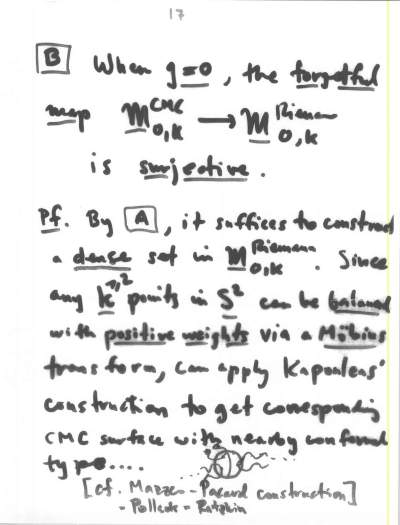 17
B When g=0, the forgetful
map M^{CMC}_{0,k} → M^{Riemann}_{0,k}
is surjective.
Pf. By A, it suffices to construct
a dense set in M^{Riemann}_{0,k}. Since
any k>2 points in S² can be balanced
with positive weights via a Möbius
transform, can apply Kapouleas'
construction to get corresponding
CMC surface with nearby conformal
type....
[cf. Mazzeo-Pacard construction]
-Pollack-Ratzkin